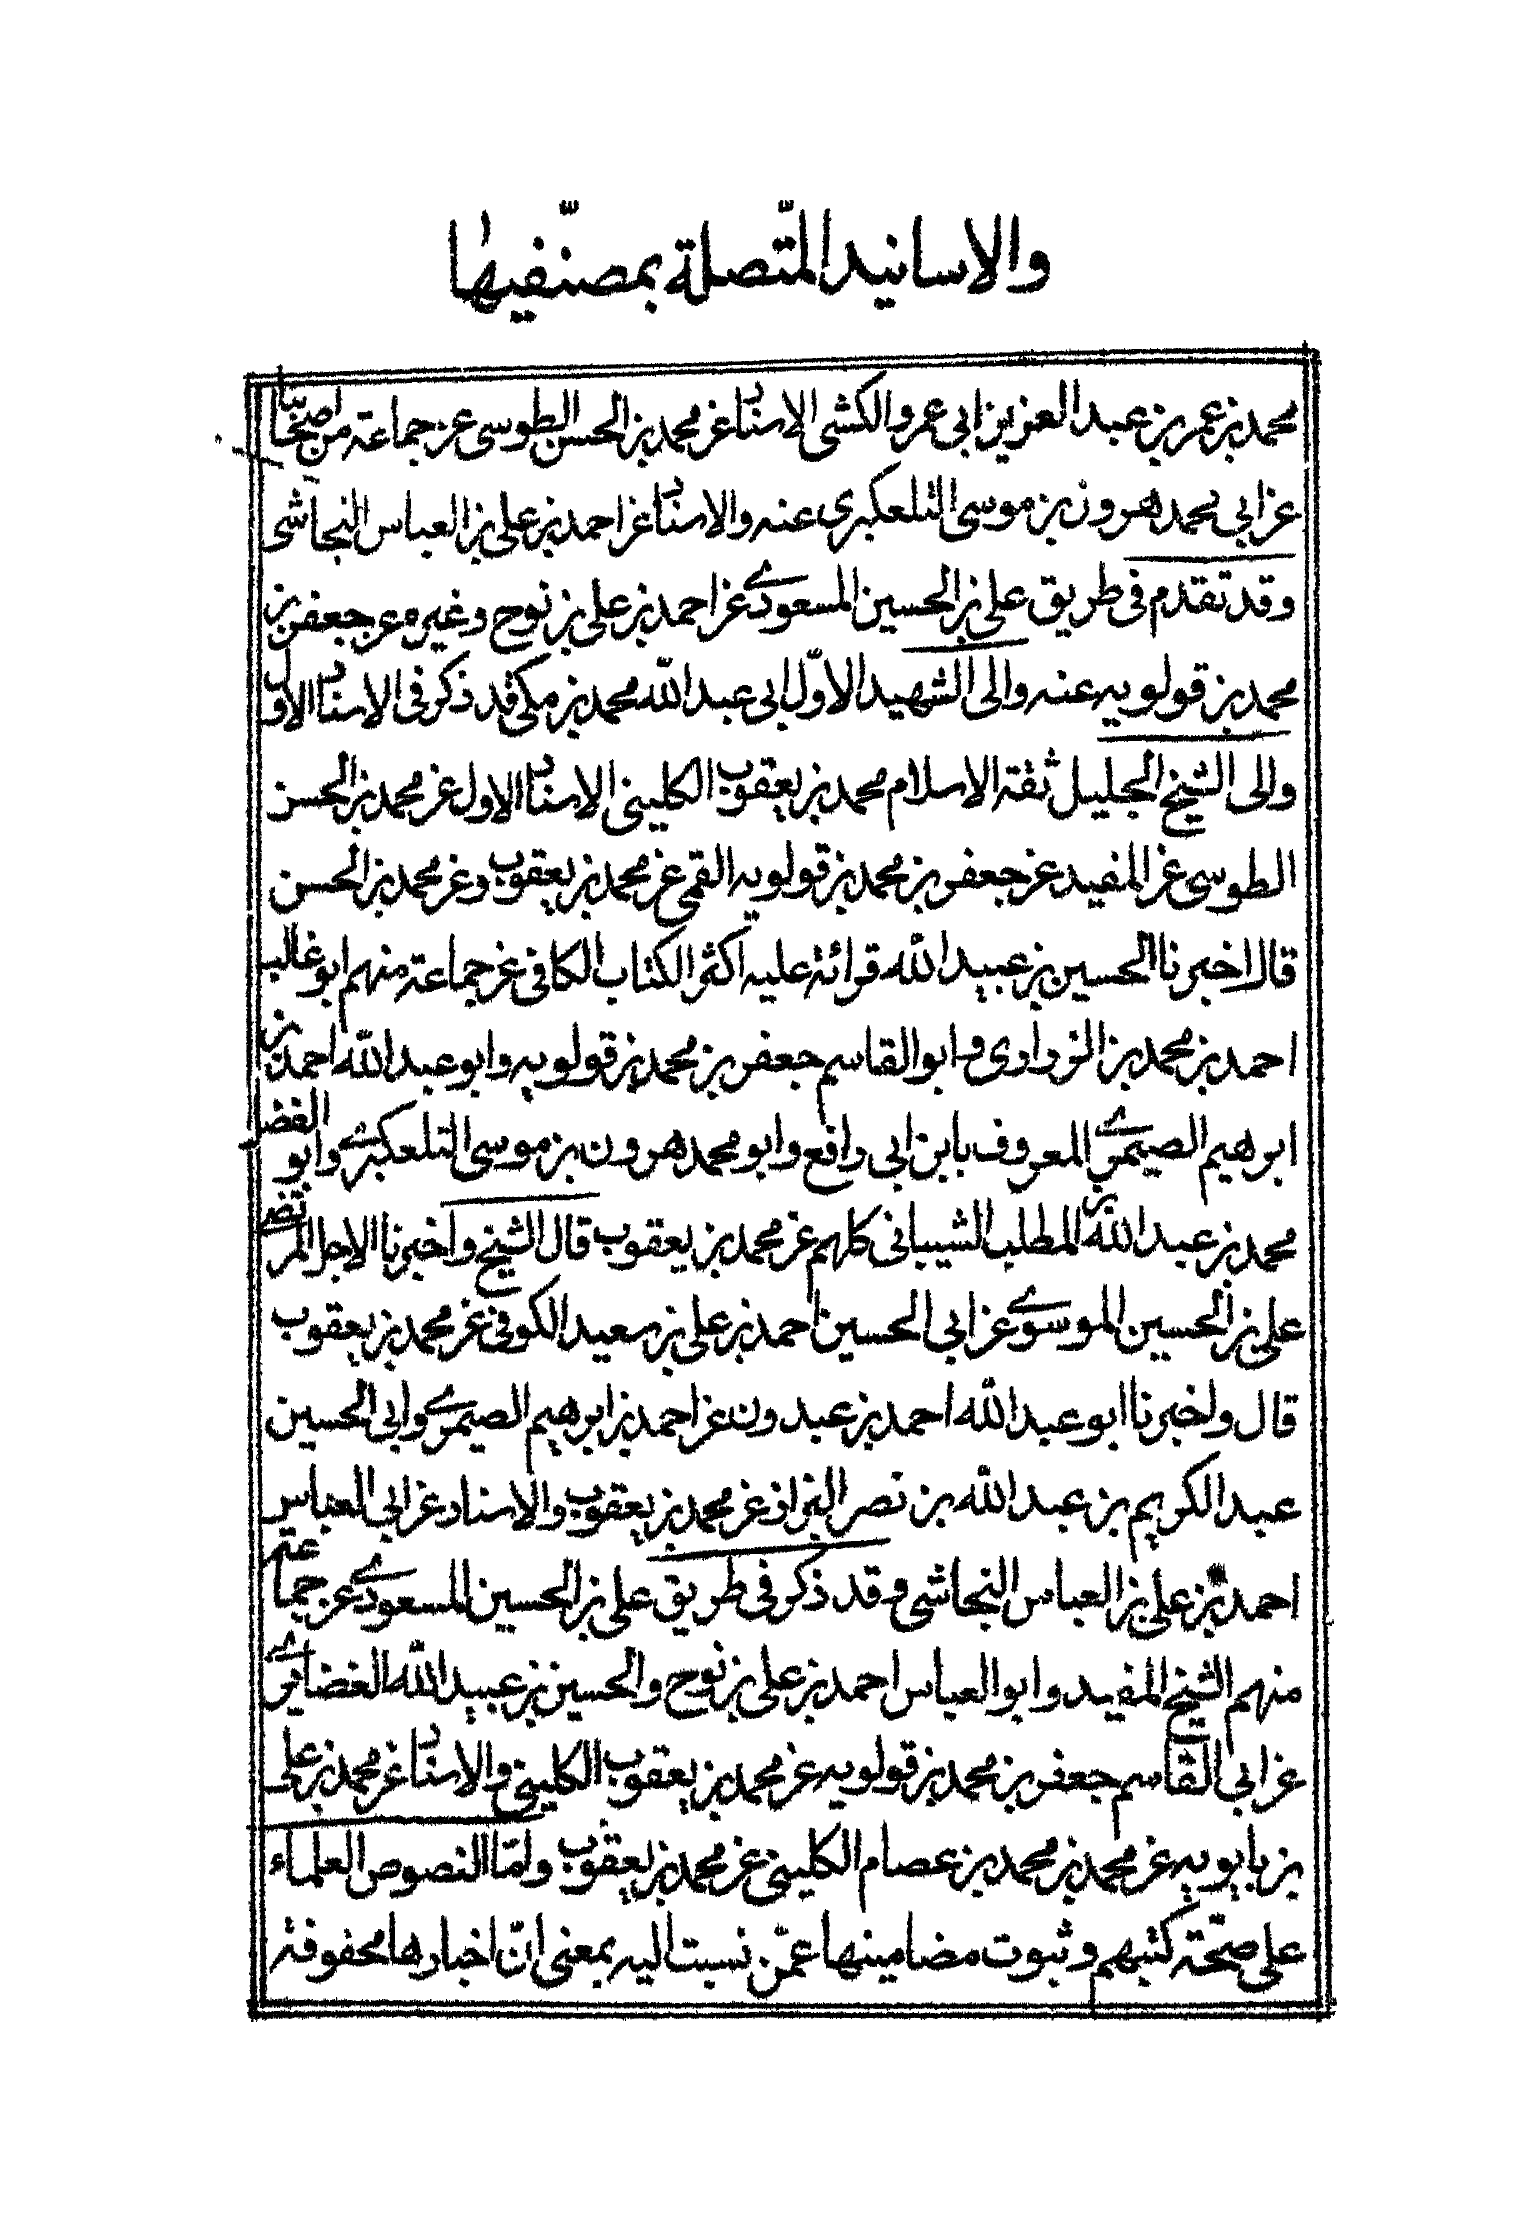 والاسانيد المتّصلة بمصنّفيها
محمد بن عمر بن عبد العزيز بن ابي عمرو الكشي الاسناد عن محمد بن الحسن الطوسي عن جماعة من اصحابنا
عن ابي محمد هرون بن موسى التلعكبري عنه والاسناد عن احمد بن علي بن العباس النجاشي
وقد تقدم في طريق علي بن الحسين المسعودي عن احمد بن علي بن نوح وغيره عن جعفر بن
محمد بن قولويه عنه والى الشهيد الاوّل ابي عبد اللّه محمد بن مكي قد ذكر في الاسناد الاول
والى الشيخ الجليل ثقة الاسلام محمد بن يعقوب الكليني الاسناد الاول عن محمد بن الحسن
الطوسي عن المفيد عن جعفر بن محمد بن قولويه القمي عن محمد بن يعقوب وعن محمد بن الحسن
قال اخبرنا الحسين بن عبيد اللّه قرائة عليه اكثر الكتاب الكافي عن جماعة منهم ابو غالب
احمد بن محمد بن الزراري و ابو القاسم جعفر بن محمد بن قولويه وابو عبد اللّه احمد بن
ابرهيم الصيمري المعروف بابن ابي رافع وابو محمد هرون بن موسى التلعكبري وابو الفضل
محمد بن عبد اللّه بن المطلب الشيباني كلهم عن محمد بن يعقوب قال الشيخ واخبرنا الاجل المرتضى
علي بن الحسين الموسوي عن ابي الحسين احمد بن علي بن سعيد الكوفي عن محمد بن يعقوب
قال واخبرنا ابو عبد اللّه احمد بن عبدون عن احمد بن ابرهيم الصيمري وابي الحسين
عبد الكريم بن عبد اللّه بن نصر البزاز عن محمد بن يعقوب والاسناد عن ابي العباس
احمد بن علي بن العباس النجاشي و قد ذكر في طريق علي بن الحسين المسعودي عن جماعة
منهم الشيخ المفيد وابو العباس احمد بن علي بن نوح والحسين بن عبيد اللّه الغضايري
عن ابي القاسم جعفر بن محمد بن قولويه عن محمد بن يعقوب الكليني والاسناد عن محمد بن علي
بن بابويه عن محمد بن محمد بن عصام الكليني عن محمد بن يعقوب وامّا النصوص العلماء
على صحّة كتبهم وثبوت مضامينها عمّن نسبت اليه بمعنى انّ اخبارها محفوفة